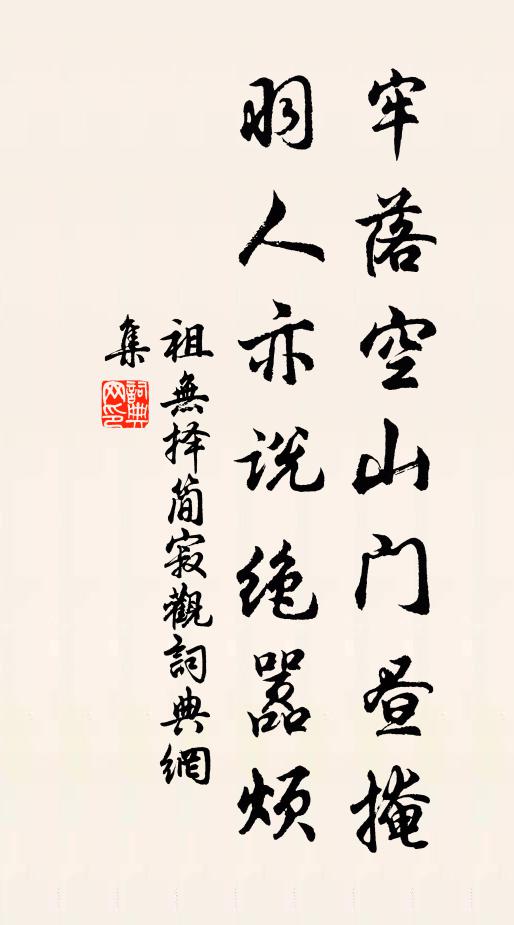 牢落空山门昼掩
羽人亦说绝嚣烦
祖無择简寂觀詞典網
集
詞典网印